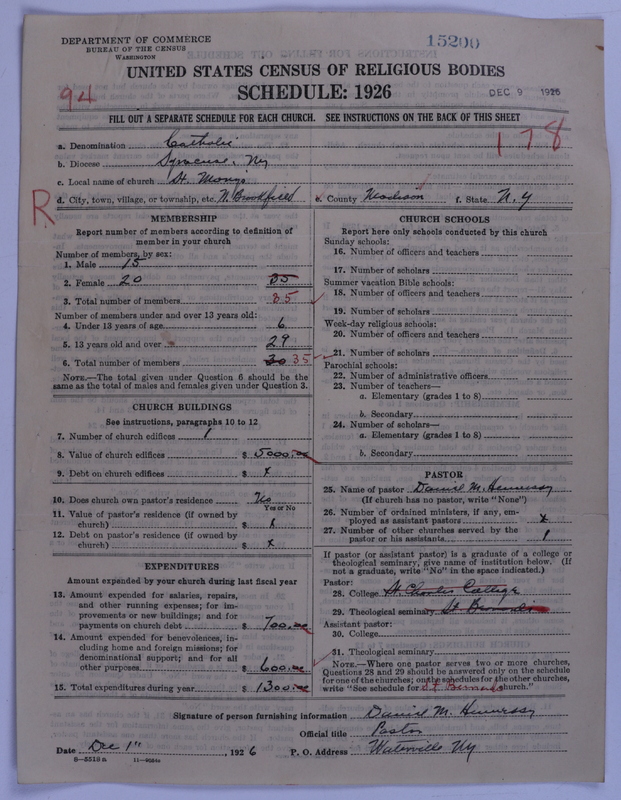 DEPARTMENT OF COMMERCE
BUREAU OF THE CENSUS
WASHINGTON
15200
UNITED STATES CENSUS OF RELIGIOUS BODIES
SCHEDULE: 1926
DEC 9 1926
94
FILL OUT A SEPARATE SCHEDULE FOR EACH CHURCH. SEE INSTRUCTIONS ON THE BACK OF THIS SHEET
178
a. Denomination Catholic
b. Diocese Syracuse, Ny
c. Local name of church St. Mary's
R
d. City, town, village, or township, etc. N. Brookfield e. County Madison f. State N.Y
MEMBERSHIP
Report number of members according to definition of
member in your church
Number of members, by sex:
1. Male 15
2. Female 20 35
3. Total number of members 35
Number of members under and over 13 years old:
4. Under 13 years of age 6
5. 13 years old and over 29
6. Total number of members 30 35
NOTE.—The total given under Question 6 should be the
same as the total of males and females given under Question 3.
CHURCH BUILDINGS
See instructions, paragraphs 10 to 12
7. Number of church edifices 1
8. Value of church edifices $ 5000.00
9. Debt on church edifices $ x
10. Does church own pastor's residence No
Yes or No
11. Value of pastor's residence (if owned by
church) $ x
12. Debt on pastor's residence (if owned by
church) $ x
EXPENDITURES
Amount expended by your church during last fiscal year
13. Amount expended for salaries, repairs,
and other running expenses; for im-
provements or new buildings; and for
payments on church debt $ 700.00
14. Amount expended for benevolences, in-
cluding home and foreign missions; for
denominational support; and for all
other purposes $ 600.00
15. Total expenditures during year $ 1300.00
CHURCH SCHOOLS
Report here only schools conducted by this church
Sunday schools:
16. Number of officers and teachers
17. Number of scholars
Summer vacation Bible schools:
18. Number of officers and teachers
19. Number of scholars
Week-day religious schools:
20. Number of officers and teachers
21. Number of scholars
Parochial schools:
22. Number of administrative officers
23. Number of teachers—
a. Elementary (grades 1 to 8)
b. Secondary
24. Number of scholars—
a. Elementary (grades 1 to 8)
b. Secondary
PASTOR
25. Name of pastor Daniel M. Hennessy
(If church has no pastor, write "None")
26. Number of ordained ministers, if any, em-
ployed as assistant pastors x
27. Number of other churches served by the
pastor or his assistants 1
If pastor (or assistant pastor) is a graduate of a college or
theological seminary, give name of institution below. (If
not a graduate, write "No" in the space indicated.)
Pastor:
28. College St Charles College
29. Theological seminary St
Assistant pastor:
30. College
31. Theological seminary
NOTE.—Where one pastor serves two or more churches,
Questions 28 and 29 should be answered only on the schedule
for one of the churches; on the schedules for the other churches,
write "See schedule for St. Bernards church."
Signature of person furnishing information Daniel M. Hennessy
Official title Pastor
Date Dec 1st, 1926 P. O. Address Waterville Ny
8—5518a 11—9054a